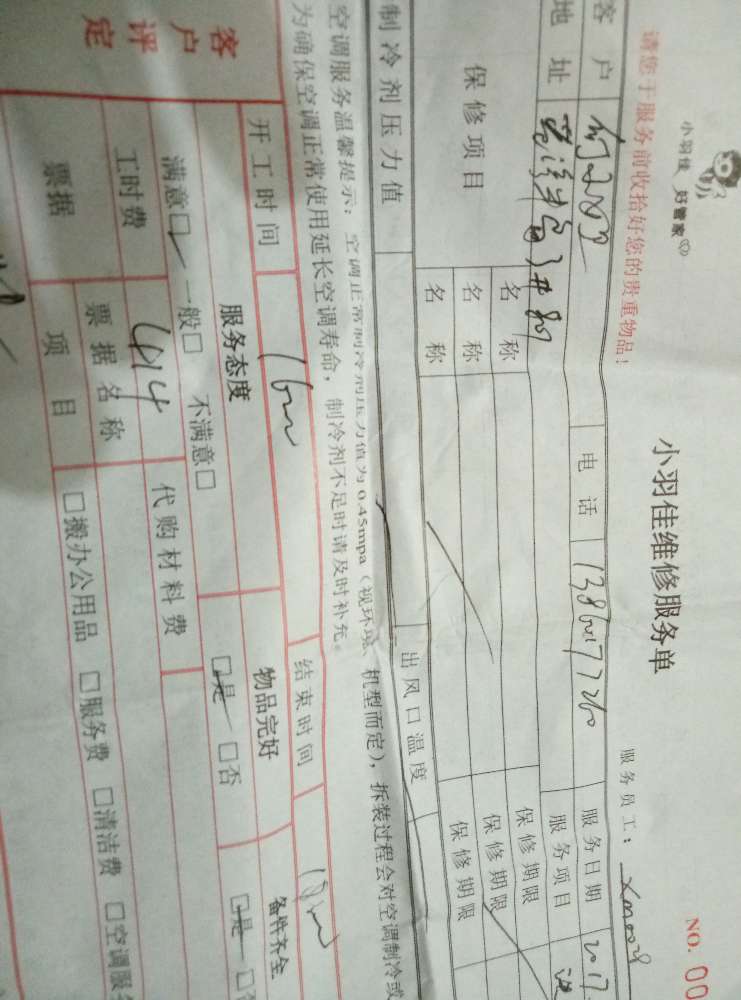 小羽佳 好管家
小羽佳维修服务单
NO. 00
请您于服务前收拾好您的贵重物品！
服务员工：
客户 电话 服务日期 2017
地址 服务项目
保修项目 名称 保修期限
名称 保修期限
名称 保修期限
制冷剂压力值 出风口温度
空调服务温馨提示：空调正常制冷剂压力值为0.45mpa（视环境、机型而定），拆装过程会对空调制冷或
为确保空调正常使用延长空调寿命，制冷剂不足时请及时补充。
开工时间 结束时间
客户评定 服务态度 物品完好 备件齐全
满意□ 一般□ 不满意□ □是 □否 □是
工时费 414 代购材料费
票据 票据名称
项目 □搬办公用品 □服务费 □清洁费 □空调服